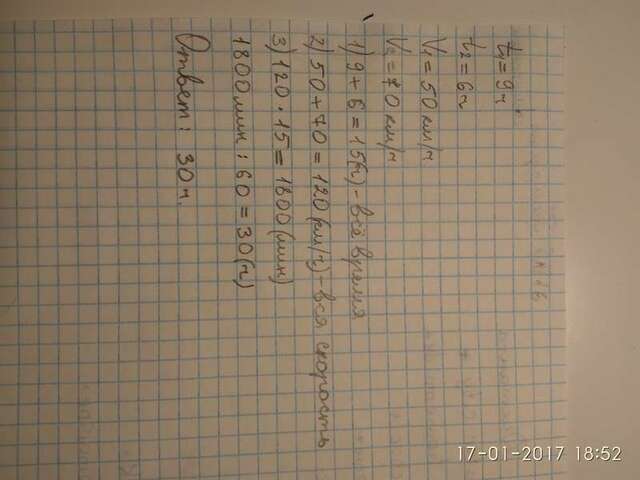 t₁ = 9ч
t₂ = 6ч
V₁ = 50 км/ч
V₂ = 70 км/ч
1) 9 + 6 = 15(ч) - всё время
2) 50 + 70 = 120(км/ч) - вся скорость
3) 120 · 15 = 1800(мин)
1800 мин : 60 = 30(ч)
Ответ: 30 ч.
17-01-2017 18:52